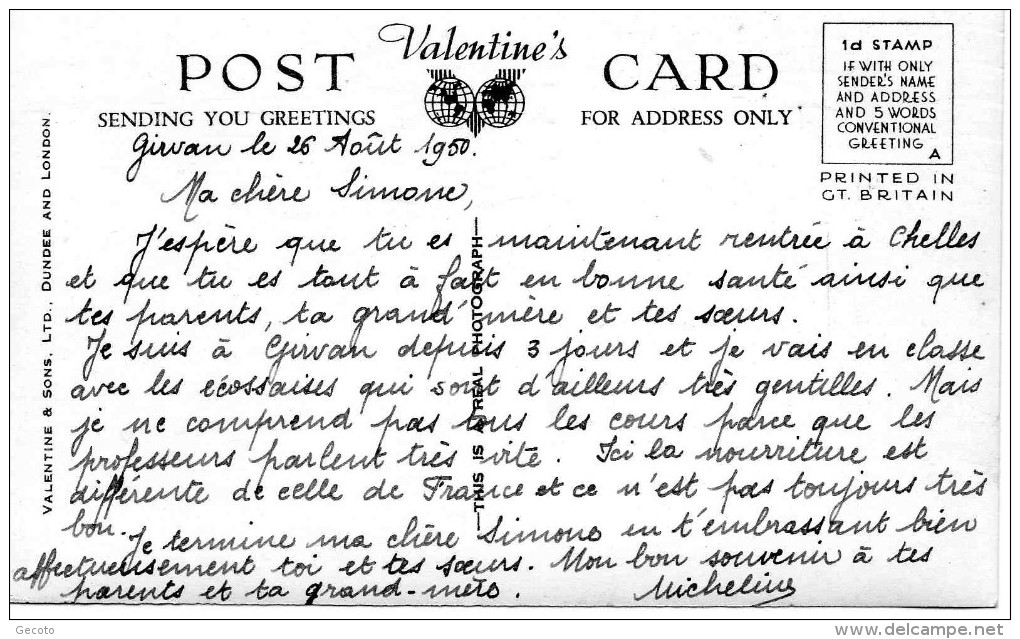 Valentine's
POST CARD
SENDING YOU GREETINGS
FOR ADDRESS ONLY
1d STAMP
IF WITH ONLY
SENDER'S NAME
AND ADDRESS
AND 5 WORDS
CONVENTIONAL
GREETING
A
PRINTED IN
GT. BRITAIN
VALENTINE & SONS, LTD., DUNDEE AND LONDON.
THIS IS A REAL PHOTOGRAPH
Girvan le 26 Août 1950.
Ma chère Simone,
J'espère que tu es maintenant rentrée à Chelles
et que tu es tout à fait en bonne santé ainsi que
tes parents, ta grand'mère et tes sœurs.
Je suis à Girvan depuis 3 jours et je vais en classe
avec les écossaises qui sont d'ailleurs très gentilles. Mais
je ne comprend pas tous les cours parce que les
professeurs parlent très vite. Ici la nourriture est
différente de celle de France et ce n'est pas toujours très
bon.
Je termine ma chère Simone en t'embrassant bien
affectueusement toi et tes sœurs. Mon bon souvenir à tes
parents et ta grand-mère.
Micheline
Gecoto
delcampe.net